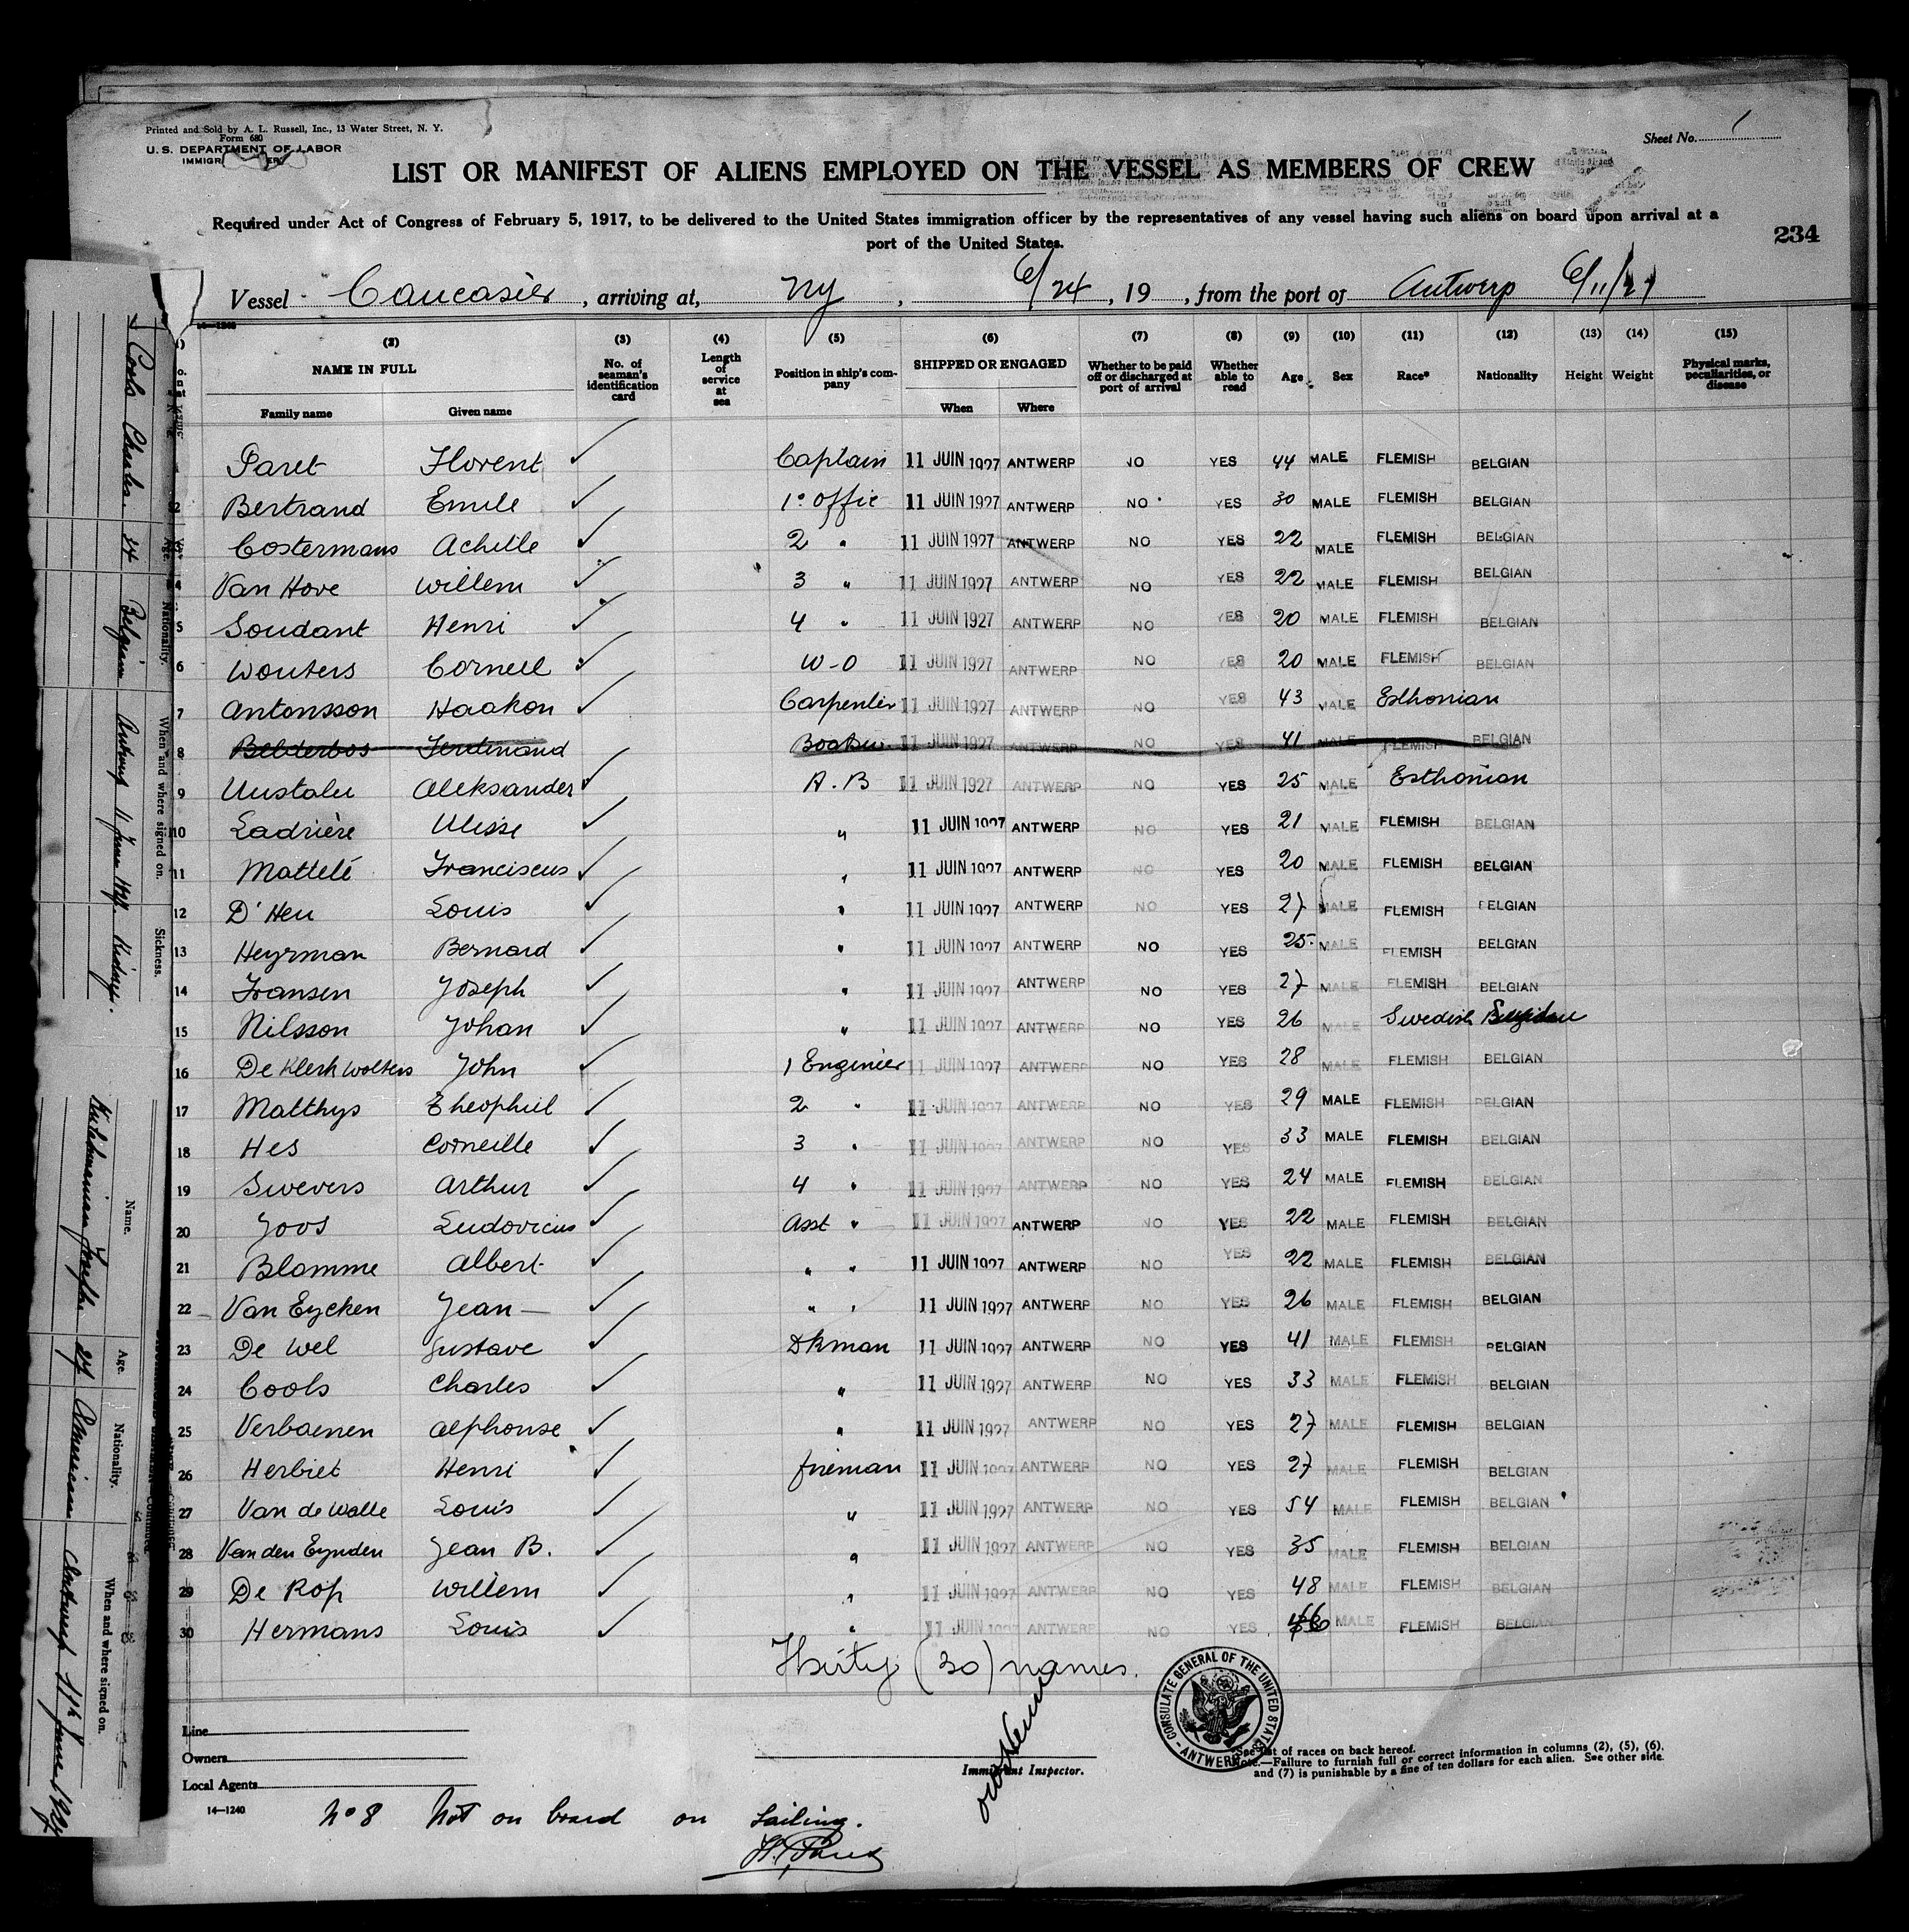 Printed and Sold by A. L. Russell, Inc., 13 Water Street, N. Y.
Form 680
U. S. DEPARTMENT OF LABOR
Sheet No. 1
LIST OR MANIFEST OF ALIENS EMPLOYED ON THE VESSEL AS MEMBERS OF CREW
Required under Act of Congress of February 5, 1917, to be delivered to the United States immigration officer by the representatives of any vessel having such aliens on board upon arrival at a
port of the United States.
234
Vessel Caucasier, arriving at, NY, 6/24, 19 , from the port of Antwerp 6/11/27
14—1240
(2) (3) (4) (5) (6) (7) (8) (9) (10) (11) (12) (13) (14) (15)
NAME IN FULL No. of seaman's identification card Length of service at sea Position in ship's company SHIPPED OR ENGAGED Whether to be paid off or discharged at port of arrival Whether able to read Age Sex Race* Nationality Height Weight Physical marks, peculiarities, or disease
Family name Given name When Where
1 Paret Florent Captain 11 JUIN 1927 ANTWERP NO YES 44 MALE FLEMISH BELGIAN
2 Bertrand Emile 1° offic 11 JUIN 1927 ANTWERP NO YES 30 MALE FLEMISH BELGIAN
3 Costermans Achille 2 " 11 JUIN 1927 ANTWERP NO YES 22 MALE FLEMISH BELGIAN
4 Van Hove Willem 3 " 11 JUIN 1927 ANTWERP NO YES 22 MALE FLEMISH BELGIAN
5 Soudant Henri 4 " 11 JUIN 1927 ANTWERP NO YES 20 MALE FLEMISH BELGIAN
6 Wouters Corneel W-O 11 JUIN 1927 ANTWERP NO YES 20 MALE FLEMISH BELGIAN
7 Antonsson Haakon Carpenter 11 JUIN 1927 ANTWERP NO YES 43 MALE Esthonian
8 Belderbos Ferdinand 11 JUIN 1927 ANTWERP NO YES 41 MALE FLEMISH BELGIAN
9 Uustalu Aleksander A.B 11 JUIN 1927 ANTWERP NO YES 25 MALE Esthonian
10 Ladrière Ulisse " 11 JUIN 1927 ANTWERP NO YES 21 MALE FLEMISH BELGIAN
11 Mattelé Franciscus " 11 JUIN 1927 ANTWERP NO YES 20 MALE FLEMISH BELGIAN
12 D'Heu Louis " 11 JUIN 1927 ANTWERP NO YES 27 MALE FLEMISH BELGIAN
13 Heyrman Bernard " 11 JUIN 1927 ANTWERP NO YES 25 MALE FLEMISH BELGIAN
14 Fransen Joseph " 11 JUIN 1927 ANTWERP NO YES 27 MALE FLEMISH BELGIAN
15 Nilsson Johan " 11 JUIN 1927 ANTWERP NO YES 26 MALE Swedish
16 De Klerk Wolters John 1 Engineer 11 JUIN 1927 ANTWERP NO YES 28 MALE FLEMISH BELGIAN
17 Matthys Theophiel 2 " 11 JUIN 1927 ANTWERP NO YES 29 MALE FLEMISH BELGIAN
18 Hes Corneille 3 " 11 JUIN 1927 ANTWERP NO YES 33 MALE FLEMISH BELGIAN
19 Swevers Arthur 4 " 11 JUIN 1927 ANTWERP NO YES 24 MALE FLEMISH BELGIAN
20 Joos Ludovicus Asst " 11 JUIN 1927 ANTWERP NO YES 22 MALE FLEMISH BELGIAN
21 Blomme Albert " " 11 JUIN 1927 ANTWERP NO YES 22 MALE FLEMISH BELGIAN
22 Van Eycken Jean " " 11 JUIN 1927 ANTWERP NO YES 26 MALE FLEMISH BELGIAN
23 De Wel Gustave Dkman 11 JUIN 1927 ANTWERP NO YES 41 MALE FLEMISH BELGIAN
24 Cools Charles " 11 JUIN 1927 ANTWERP NO YES 33 MALE FLEMISH BELGIAN
25 Verbaenen Alphonse " 11 JUIN 1927 ANTWERP NO YES 27 MALE FLEMISH BELGIAN
26 Herbiet Henri fireman 11 JUIN 1927 ANTWERP NO YES 27 MALE FLEMISH BELGIAN
27 Van de Walle Louis " 11 JUIN 1927 ANTWERP NO YES 54 MALE FLEMISH BELGIAN
28 Van den Eynden Jean B. " 11 JUIN 1927 ANTWERP NO YES 35 MALE FLEMISH BELGIAN
29 De Rop Willem " 11 JUIN 1927 ANTWERP NO YES 48 MALE FLEMISH BELGIAN
30 Hermans Louis " 11 JUIN 1927 ANTWERP NO YES MALE FLEMISH BELGIAN
Thirty (30) names.
CONSULATE GENERAL OF THE UNITED STATES ANTWERP
Line
Owners
Local Agents
Immigrant Inspector.
*See list of races on back hereof.
Note.—Failure to furnish full or correct information in columns (2), (5), (6),
and (7) is punishable by a fine of ten dollars for each alien. See other side.
14—1240
No 8 Not on board on sailing.
Cools Charles. 34 Belgian Antwerp 11 June 1927. Kidneys.
Age. Nationality. When and where signed on. Sickness.
Name. Age. Nationality. When and where signed on.
Antwerp 11th June 1927